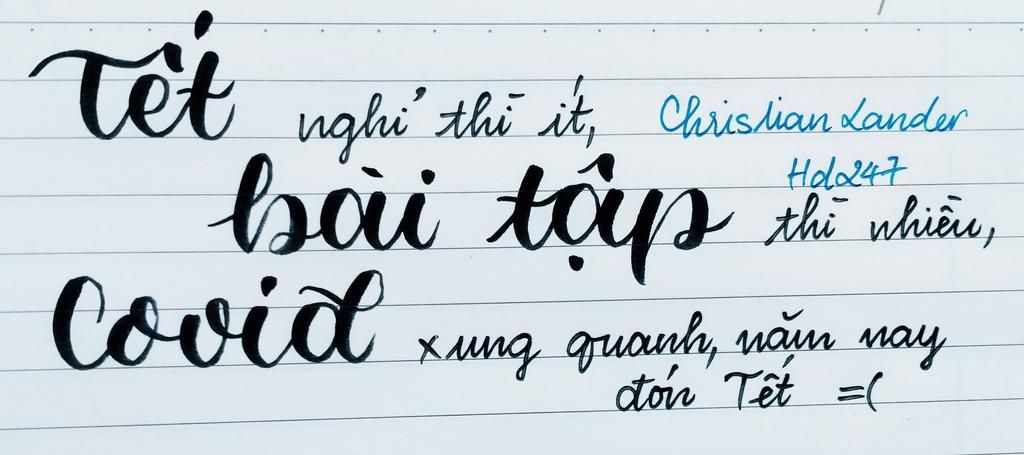 Tết nghỉ thì ít, Christian Lander
Hd247
bài tập thì nhiều,
Covid xung quanh, năm nay
đón Tết =(